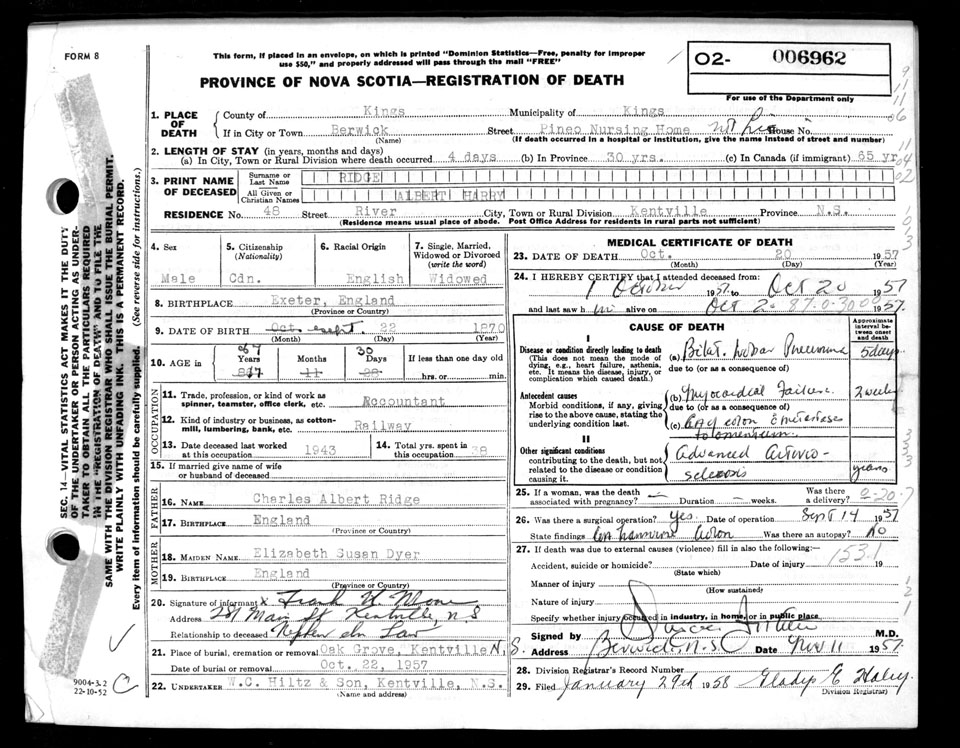 FORM 8
This form, if placed in an envelope, on which is printed "Dominion Statistics—Free, penalty for improper
use $50," and properly addressed will pass through the mail "FREE"
PROVINCE OF NOVA SCOTIA—REGISTRATION OF DEATH
02- 006962
For use of the Department only
1. PLACE OF DEATH
County of Kings Municipality of Kings
If in City or Town Berwick Street Pineo Nursing Home House No.
(Name) (If death occurred in a hospital or institution, give the name instead of street and number)
2. LENGTH OF STAY (in years, months and days)
(a) In City, Town or Rural Division where death occurred 4 days (b) In Province 30 yrs. (c) In Canada (if immigrant) 65 yr
3. PRINT NAME OF DECEASED
Surname or Last Name RIDGE
All Given or Christian Names ALBERT HARRY
RESIDENCE No. 48 Street River City, Town or Rural Division Kentville Province N.S.
(Residence means usual place of abode. Post Office Address for residents in rural parts not sufficient)
4. Sex
Male
5. Citizenship (Nationality)
Cdn.
6. Racial Origin
English
7. Single, Married, Widowed or Divorced (write the word)
Widowed
8. BIRTHPLACE Exeter, England
(Province or Country)
9. DATE OF BIRTH Oct. Sept. 22 1870
(Month) (Day) (Year)
10. AGE in Years Months Days If less than one day old
87 11 28 30 hrs. or min.
OCCUPATION
11. Trade, profession, or kind of work as
spinner, teamster, office clerk, etc. Accountant
12. Kind of industry or business, as cotton-
mill, lumbering, bank, etc. Railway
13. Date deceased last worked
at this occupation 1943
14. Total yrs. spent in
this occupation 38
15. If married give name of wife
or husband of deceased
FATHER
16. NAME Charles Albert Ridge
17. BIRTHPLACE England
(Province or Country)
MOTHER
18. MAIDEN NAME Elizabeth Susan Dyer
19. BIRTHPLACE England
(Province or Country)
20. Signature of informant x Frank
Address Main St Kentville, N.S
Relationship to deceased Nephew in Law
21. Place of burial, cremation or removal Oak Grove, Kentville N.S.
Date of burial or removal Oct. 22, 1957
22. UNDERTAKER W.C. Hiltz & Son, Kentville, N.S.
(Name and address)
MEDICAL CERTIFICATE OF DEATH
23. DATE OF DEATH Oct. 20 1957
(Month) (Day) (Year)
24. I HEREBY CERTIFY that I attended deceased from:
1 October 1957 to Oct 20 1957
and last saw him alive on Oct 20 1957.
CAUSE OF DEATH
Approximate interval between onset and death
I
Disease or condition directly leading to death
(This does not mean the mode of
dying, e.g., heart failure, asthenia,
etc. It means the disease, injury, or
complication which caused death.)
(a) Bilat. Lobar Pneumonia 5 days
due to (or as a consequence of)
Antecedent causes
Morbid conditions, if any, giving
rise to the above cause, stating the
underlying condition last.
(b) Myocardial Failure 2 weeks
due to (or as a consequence of)
(c) Ca of colon c metastases
to omentum
II
Other significant conditions
contributing to the death, but not
related to the disease or condition
causing it.
Advanced arterio-
sclerosis years
25. If a woman, was the death
associated with pregnancy? — Duration — weeks. Was there
a delivery?
26. Was there a surgical operation? yes. Date of operation Sept 14 1957
State findings Carcinoma colon Was there an autopsy? No
27. If death was due to external causes (violence) fill in also the following:—
153.1
Accident, suicide or homicide? Date of injury 19
(State which)
Manner of injury
(How sustained)
Nature of injury
Specify whether injury occurred in industry, in home, or in public place
Signed by M.D.
Address Berwick, N.S. Date Nov 11 1957
28. Division Registrar's Record Number
29. Filed January 29th 1958 Gladys E Haley.
Division Registrar)
SEC. 14—VITAL STATISTICS ACT MAKES IT THE DUTY
OF THE UNDERTAKER OR PERSON ACTING AS UNDER-
TAKER TO OBTAIN ALL THE PARTICULARS REQUIRED
IN THE "REGISTRATION OF DEATH" AND TO FILE THE
SAME WITH THE DIVISION REGISTRAR WHO SHALL ISSUE THE BURIAL PERMIT.
WRITE PLAINLY WITH UNFADING INK. THIS IS A PERMANENT RECORD.
Every item of information should be carefully supplied. (See reverse side for instructions.)
9004-3.2
22-10-52